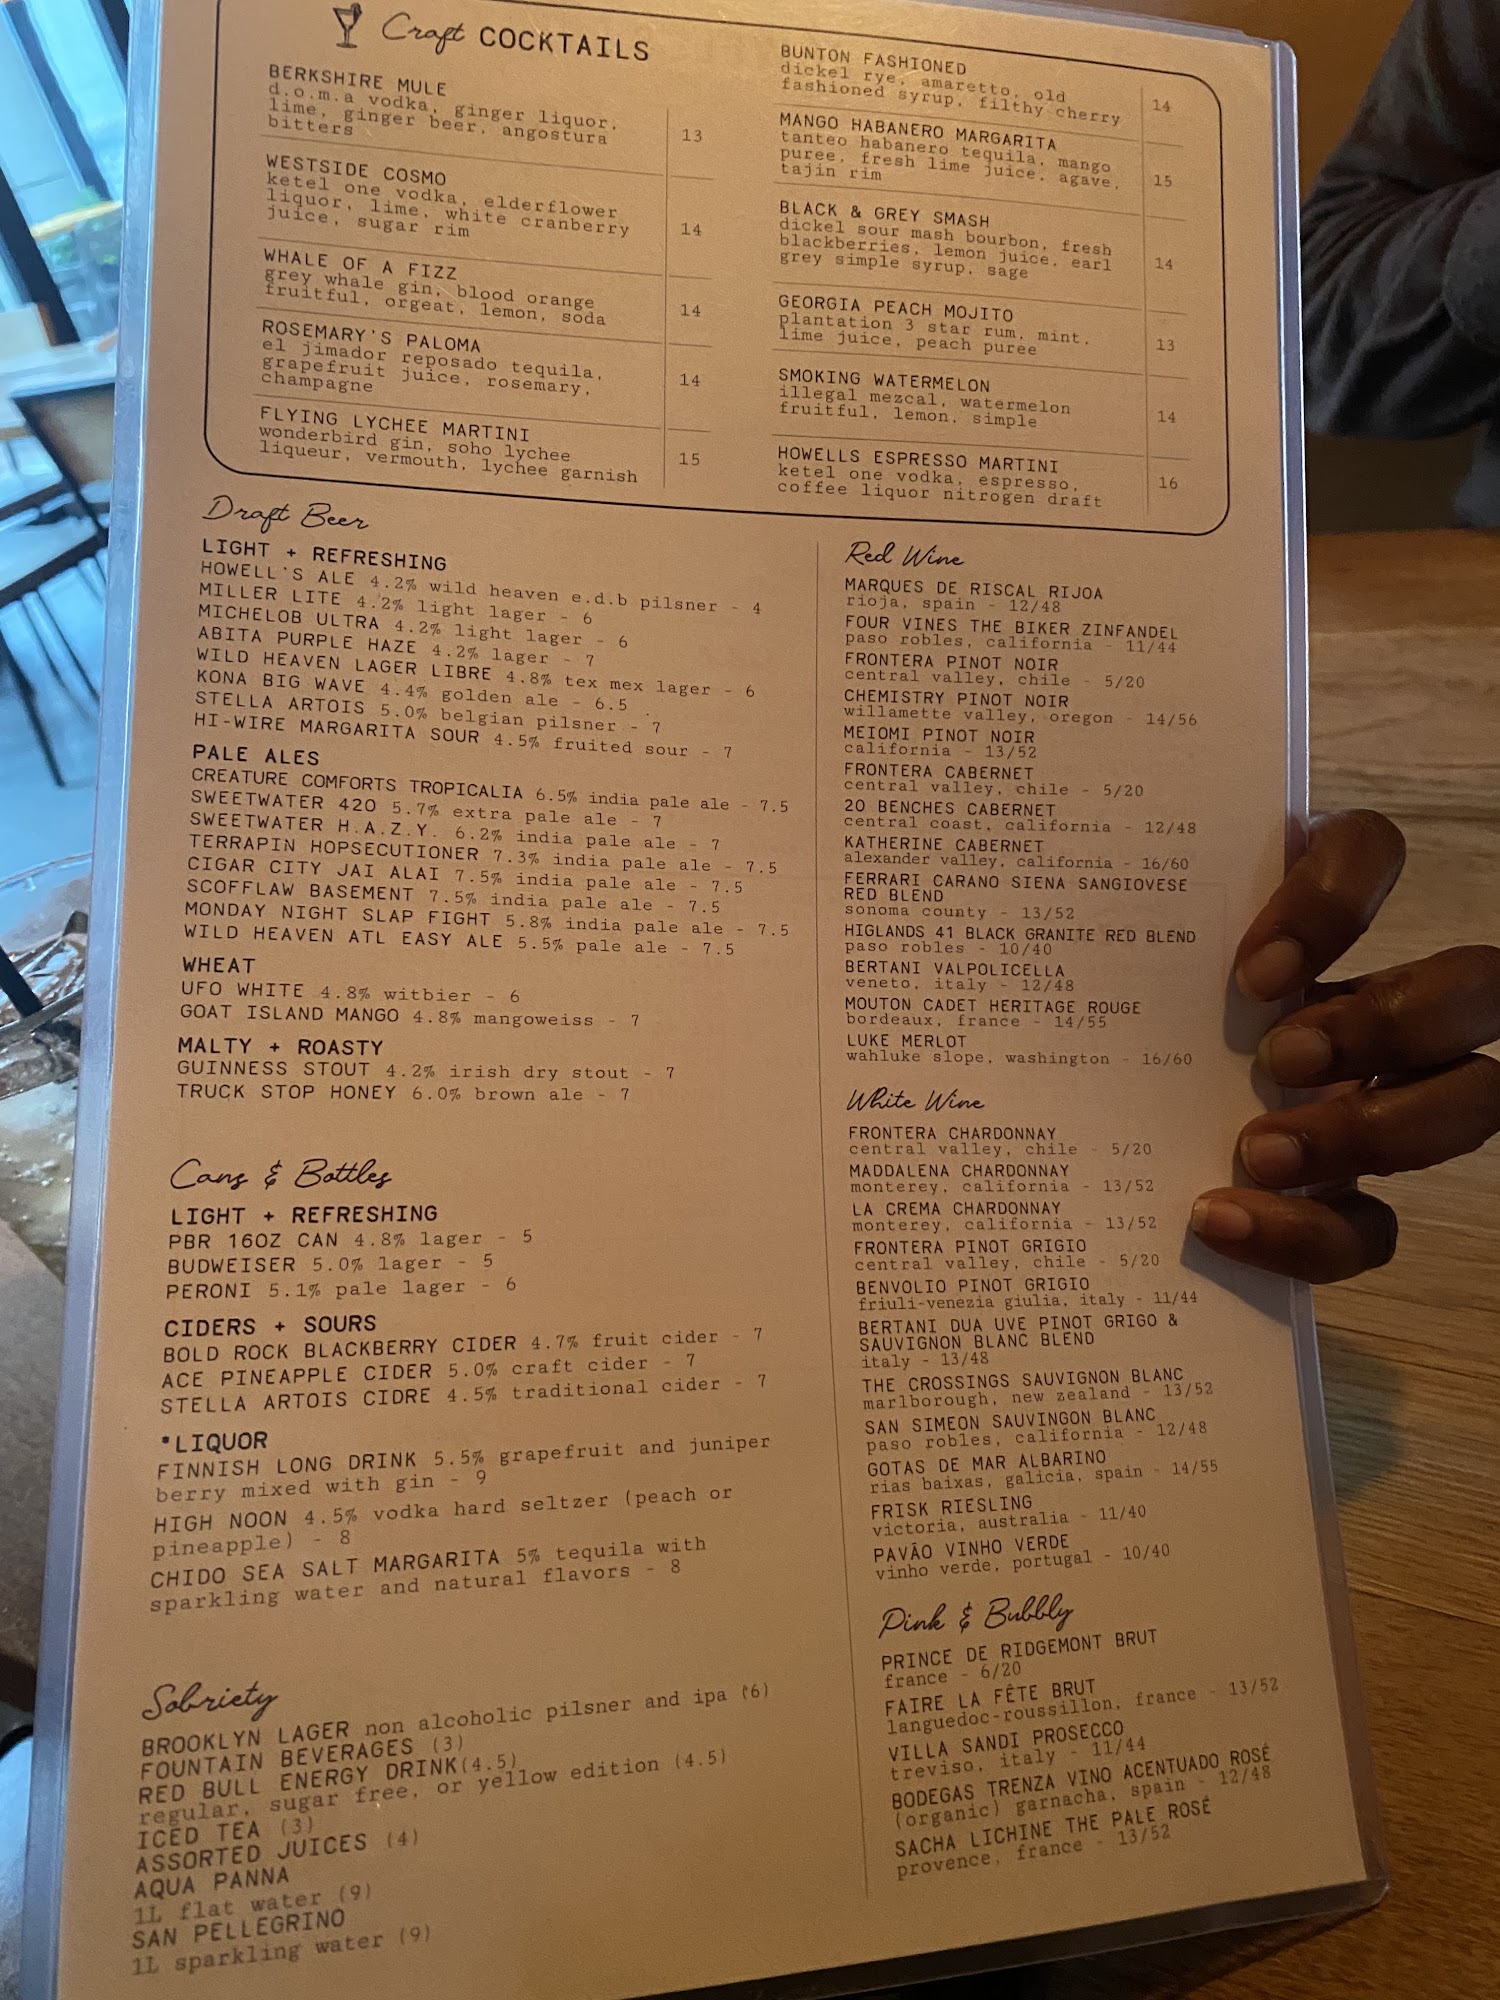 Craft COCKTAILS
BERKSHIRE MULE
d.o.m.a vodka, ginger liquor,
lime, ginger beer, angostura
bitters
13
WESTSIDE COSMO
ketel one vodka, elderflower
liquor, lime, white cranberry
juice, sugar rim
14
WHALE OF A FIZZ
grey whale gin, blood orange
fruitful, orgeat, lemon, soda
14
ROSEMARY'S PALOMA
el jimador reposado tequila,
grapefruit juice, rosemary,
champagne
14
FLYING LYCHEE MARTINI
wonderbird gin, soho lychee
liqueur, vermouth, lychee garnish
15
BUNTON FASHIONED
dickel rye, amaretto, old
fashioned syrup, filthy cherry
14
MANGO HABANERO MARGARITA
tanteo habanero tequila, mango
puree, fresh lime juice, agave,
tajin rim
15
BLACK & GREY SMASH
dickel sour mash bourbon, fresh
blackberries, lemon juice, earl
grey simple syrup, sage
14
GEORGIA PEACH MOJITO
plantation 3 star rum, mint,
lime juice, peach puree
13
SMOKING WATERMELON
illegal mezcal, watermelon
fruitful, lemon, simple
14
HOWELLS ESPRESSO MARTINI
ketel one vodka, espresso,
coffee liquor nitrogen draft
16
Draft Beer
LIGHT + REFRESHING
HOWELL'S ALE 4.2% wild heaven e.d.b pilsner - 4
MILLER LITE 4.2% light lager - 6
MICHELOB ULTRA 4.2% light lager - 6
ABITA PURPLE HAZE 4.2% lager - 7
WILD HEAVEN LAGER LIBRE 4.8% tex mex lager - 6
KONA BIG WAVE 4.4% golden ale - 6.5
STELLA ARTOIS 5.0% belgian pilsner - 7
HI-WIRE MARGARITA SOUR 4.5% fruited sour - 7
PALE ALES
CREATURE COMFORTS TROPICALIA 6.5% india pale ale - 7.5
SWEETWATER 420 5.7% extra pale ale - 7
SWEETWATER H.A.Z.Y. 6.2% india pale ale - 7
TERRAPIN HOPSECUTIONER 7.3% india pale ale - 7.5
CIGAR CITY JAI ALAI 7.5% india pale ale - 7.5
SCOFFLAW BASEMENT 7.5% india pale ale - 7.5
MONDAY NIGHT SLAP FIGHT 5.8% india pale ale - 7.5
WILD HEAVEN ATL EASY ALE 5.5% pale ale - 7.5
WHEAT
UFO WHITE 4.8% witbier - 6
GOAT ISLAND MANGO 4.8% mangoweiss - 7
MALTY + ROASTY
GUINNESS STOUT 4.2% irish dry stout - 7
TRUCK STOP HONEY 6.0% brown ale - 7
Cans & Bottles
LIGHT + REFRESHING
PBR 16OZ CAN 4.8% lager - 5
BUDWEISER 5.0% lager - 5
PERONI 5.1% pale lager - 6
CIDERS + SOURS
BOLD ROCK BLACKBERRY CIDER 4.7% fruit cider - 7
ACE PINEAPPLE CIDER 5.0% craft cider - 7
STELLA ARTOIS CIDRE 4.5% traditional cider - 7
*LIQUOR
FINNISH LONG DRINK 5.5% grapefruit and juniper
berry mixed with gin - 9
HIGH NOON 4.5% vodka hard seltzer (peach or
pineapple) - 8
CHIDO SEA SALT MARGARITA 5% tequila with
sparkling water and natural flavors - 8
Sobriety
BROOKLYN LAGER non alcoholic pilsner and ipa (6)
FOUNTAIN BEVERAGES (3)
RED BULL ENERGY DRINK(4.5)
regular, sugar free, or yellow edition (4.5)
ICED TEA (3)
ASSORTED JUICES (4)
AQUA PANNA
1L flat water (9)
SAN PELLEGRINO
1L sparkling water (9)
Red Wine
MARQUES DE RISCAL RIJOA
rioja, spain - 12/48
FOUR VINES THE BIKER ZINFANDEL
paso robles, california - 11/44
FRONTERA PINOT NOIR
central valley, chile - 5/20
CHEMISTRY PINOT NOIR
willamette valley, oregon - 14/56
MEIOMI PINOT NOIR
california - 13/52
FRONTERA CABERNET
central valley, chile - 5/20
20 BENCHES CABERNET
central coast, california - 12/48
KATHERINE CABERNET
alexander valley, california - 16/60
FERRARI CARANO SIENA SANGIOVESE
RED BLEND
sonoma county - 13/52
HIGLANDS 41 BLACK GRANITE RED BLEND
paso robles - 10/40
BERTANI VALPOLICELLA
veneto, italy - 12/48
MOUTON CADET HERITAGE ROUGE
bordeaux, france - 14/55
LUKE MERLOT
wahluke slope, washington - 16/60
White Wine
FRONTERA CHARDONNAY
central valley, chile - 5/20
MADDALENA CHARDONNAY
monterey, california - 13/52
LA CREMA CHARDONNAY
monterey, california - 13/52
FRONTERA PINOT GRIGIO
central valley, chile - 5/20
BENVOLIO PINOT GRIGIO
friuli-venezia giulia, italy - 11/44
BERTANI DUA UVE PINOT GRIGO &
SAUVIGNON BLANC BLEND
italy - 13/48
THE CROSSINGS SAUVIGNON BLANC
marlborough, new zealand - 13/52
SAN SIMEON SAUVINGON BLANC
paso robles, california - 12/48
GOTAS DE MAR ALBARINO
rias baixas, galicia, spain - 14/55
FRISK RIESLING
victoria, australia - 11/40
PAVÃO VINHO VERDE
vinho verde, portugal - 10/40
Pink & Bubbly
PRINCE DE RIDGEMONT BRUT
france - 6/20
FAIRE LA FÊTE BRUT
languedoc-roussillon, france - 13/52
VILLA SANDI PROSECCO
treviso, italy - 11/44
BODEGAS TRENZA VINO ACENTUADO ROSÉ
(organic) garnacha, spain - 12/48
SACHA LICHINE THE PALE ROSÉ
provence, france - 13/52